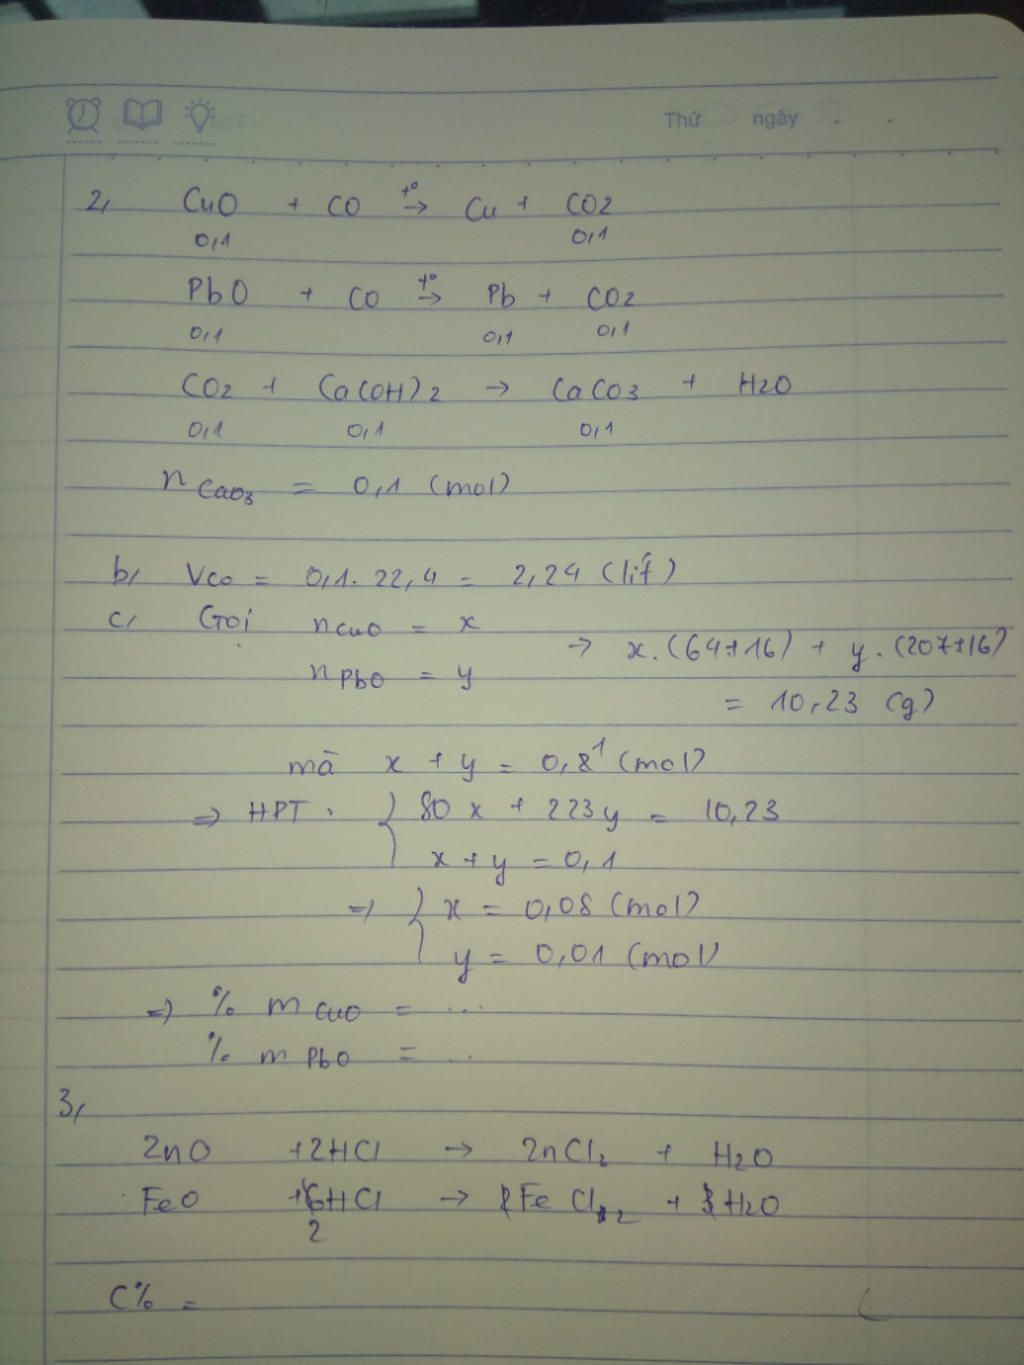 Thứ ngày
2, CuO + CO t° → Cu + CO2
0,1 0,1
PbO + CO t° → Pb + CO2
0,1 0,1 0,1
CO2 + Ca(OH)2 → CaCO3 + H2O
0,1 0,1 0,1
n CaO3 = 0,1 (mol)
b, Vco = 0,1. 22,4 = 2,24 (lít)
c, Gọi nCuO = x
→ x.(64+16) + y.(207+16)
nPbO = y
= 10,23 (g)
mà x + y = 0,1 (mol)
=> HPT: { 80x + 223y = 10,23
x + y = 0,1
=> { x = 0,08 (mol)
y = 0,01 (mol)
=> % m CuO = ...
% m PbO = ..
3,
ZnO +2HCl → ZnCl2 + H2O
FeO + 2HCl → FeCl2 + H2O
C% =